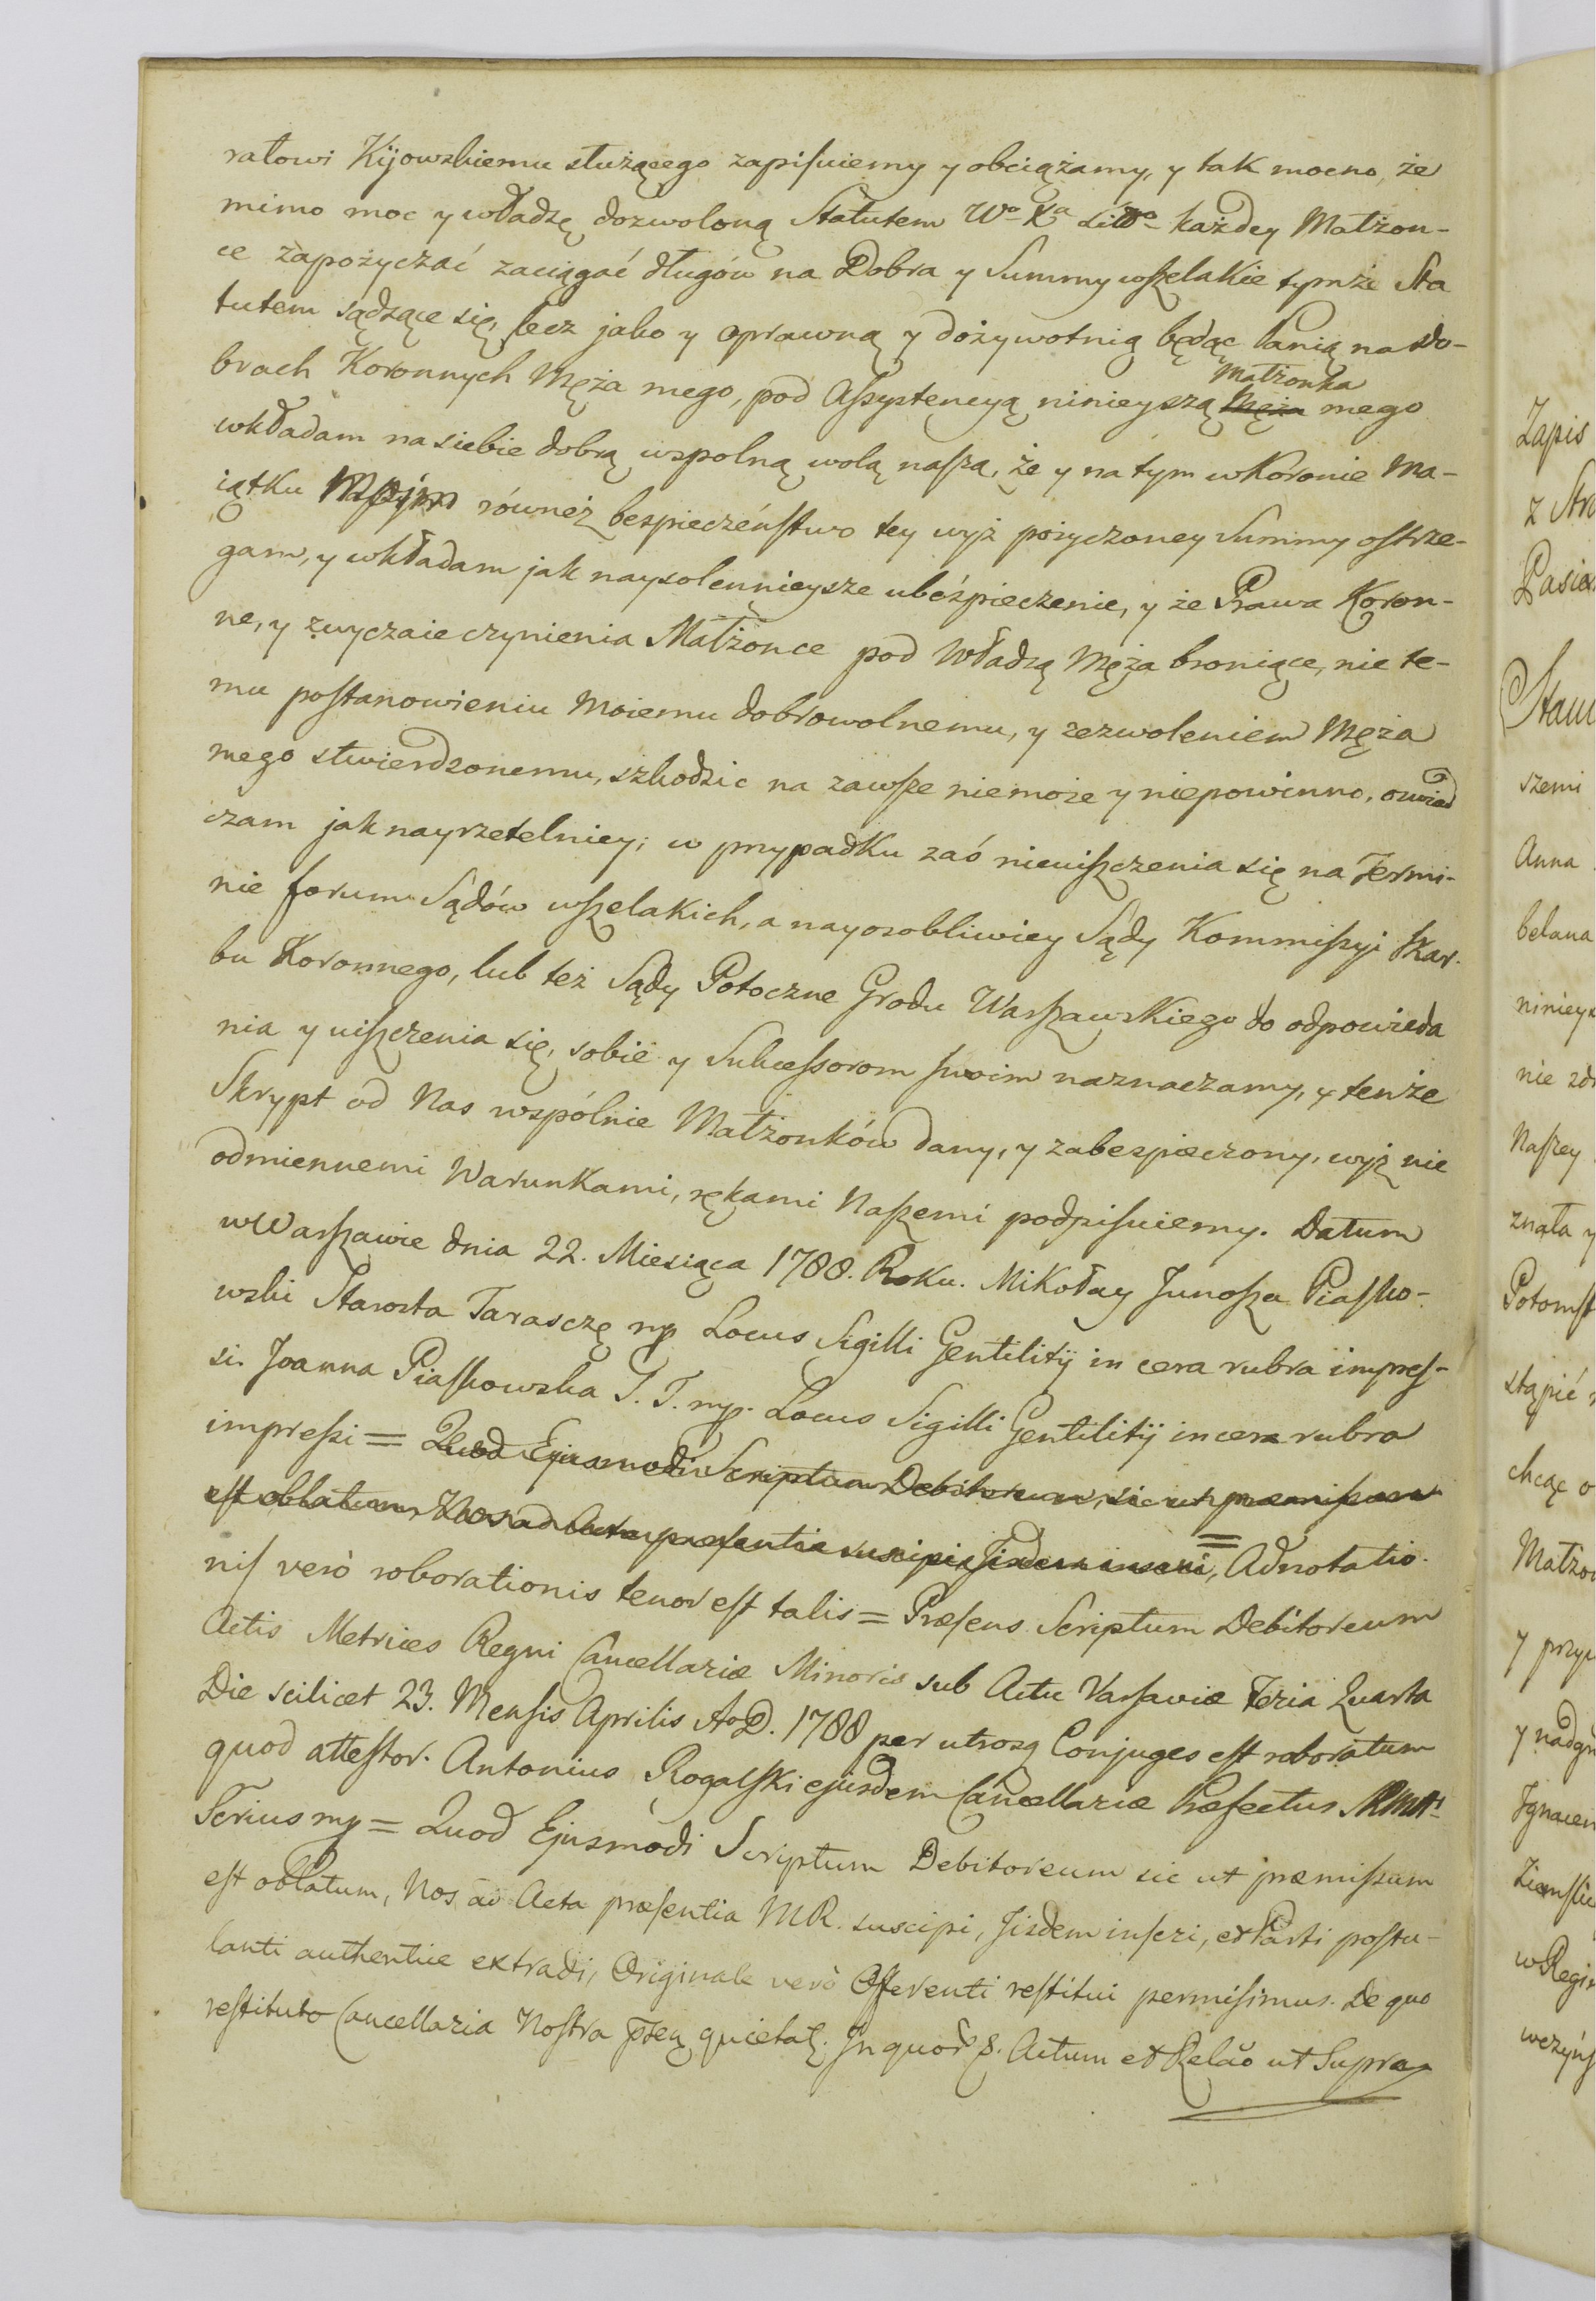 ratowi Kijowskiemu służącego zapisuiemy y obciążamy, y tak mocno, że
mimo moc y władzę dozwoloną Statutem Wo Xa Litto każdey Małżon-
ce zapożyczać zaciągać długów na Dobra y Summy wszelakie tymże Sta
tutem sądzące się, lecz jako y oprawną y dożywotnią będąc Panią na Do-
brach Koronnych Męża mego, pod Assystencyą ninieyszą Męża mego
Małżonka
wkładam na siebie dobrą wspolną wolą naszą, że y na tym w Koronie Ma-
iątku równeż bespieczeństwo tey wyż pożyczoney Summy ostrze-
gam, y wkładam jak naysolennieysze ubeźpieczenie, y że Prawa Koron-
ne, y zwyczaie czynienia Małżonce pod Władzą Męża broniące, nie te-
mu postanowieniu Moiemu dobrowolnemu, y zezwoleniem Męża
mego stwierdzonemu, szkodzic na zawsze niemoże y niepowinno, oswiad
czam jak nayrzetelniey; w przypadku zaś nieuiszczenia się na Termi-
nie forum Sądów wszelakich, a nayosobliwiey Sądy Kommissyi Skar-
bu Koronnego, lub też Sądy Potoczne Grodu Warszawskiego do odpowieda
nia y uiszczenia się, sobie y Sukcessorom swoim naznaczamy, y tenże
Skrypt od Nas wspólnie Małżonków dany, y zabezpieczony, wyż nie
odmiennemi Warunkami, rękami Naszemi podpisuiemy. Datum
w Warszawie dnia 22. Miesiąca 1788. Roku. Mikołay Junosza Piasko-
wski Starosta Tarasczę mp. Locus Sigilli Gentilitÿ in cera rubra impres-
si. Joanna Piaskowska S. T. mp. Locus Sigilli Gentilitÿ in cera rubra
impressi = Quod Ejusmodi Scriptum Debitoreum, sic ut præmissum
est oblatum, Nos ad Acta præsentia suscipi, Jisdem inseri, = Adnotatio-
nis verò roborationis tenor est talis = Præsens Scriptum Debitoreum
Actis Metrices Regni Cancellariæ Minoris sub Actu Varsaviæ Feria Quarta
Die scilicet 23. Mensis Aprilis A D. 1788 per utrosq Conjuges est roboratum
quod attestor. Antonius Rogalski ejusdem Cancellariæ Præfectus
Serius mp = Quod Ejusmodi Scriptum Debitoreum sic ut præmissum
est oblatum, Nos ad Acta præsentia MR. suscipi, Jisdem inseri, et Parti postu-
lanti authentice extradi, Originale verò Offerenti restitui permisimus. De quo
restituto Cancellaria Nostra quietat. In quor. Actum et Relão ut Supra
Zapis
z
Anna
szemi
belana
nie
Naszey
znała y
stąpić
chcąc